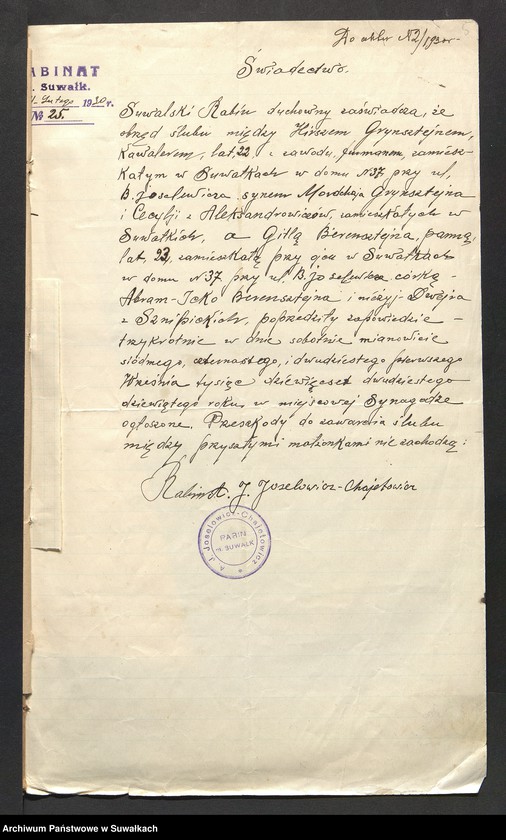 Do aktu N2/1930r.
Świadectwo.
ABINAT
. Suwałk.
Lutego 1930 r.
№ 25.
Suwalski Rabin duchowny zaświadcza, że
obrzęd ślubu między Hirszem Grynsztejnem,
kawalerem, lat 22 z zawodu furmanem, zamiesz-
kałym w Suwałkach w domu N37 przy ul.
B. Joselewicza, synem Mordchaja Grynsztejna
i Cecylji z Aleksandrowiczów, zamieszkałych w
Suwałkach, a Gitlą Berensztejna, panną,
lat 23, zamieszkałą przy ojcu w Suwałkach
w domu N37 przy ul. B. Joselewicza córką
Abram-Icko Berensztejna i nieżyj- Dwejra
z Sznipickich, poprzedziły zapowiedzie -
trzykrotnie w dnie sobotnie mianowicie
siódmego, czternastego, i dwudziestego pierwszego
Września tysiąc dziewięćset dwudziestego
dziewiątego roku, w miejscowej Synagodze
ogłoszone. Przeszkody do zawarcia ślubu
między przyszłymi małżonkami nie zachodzą :
Rabin A. J. Joselowicz-Chajetowicz
A. J. Joselowicz-Chajetowicz
RABIN
m. SUWAŁK
Archiwum Państwowe w Suwałkach